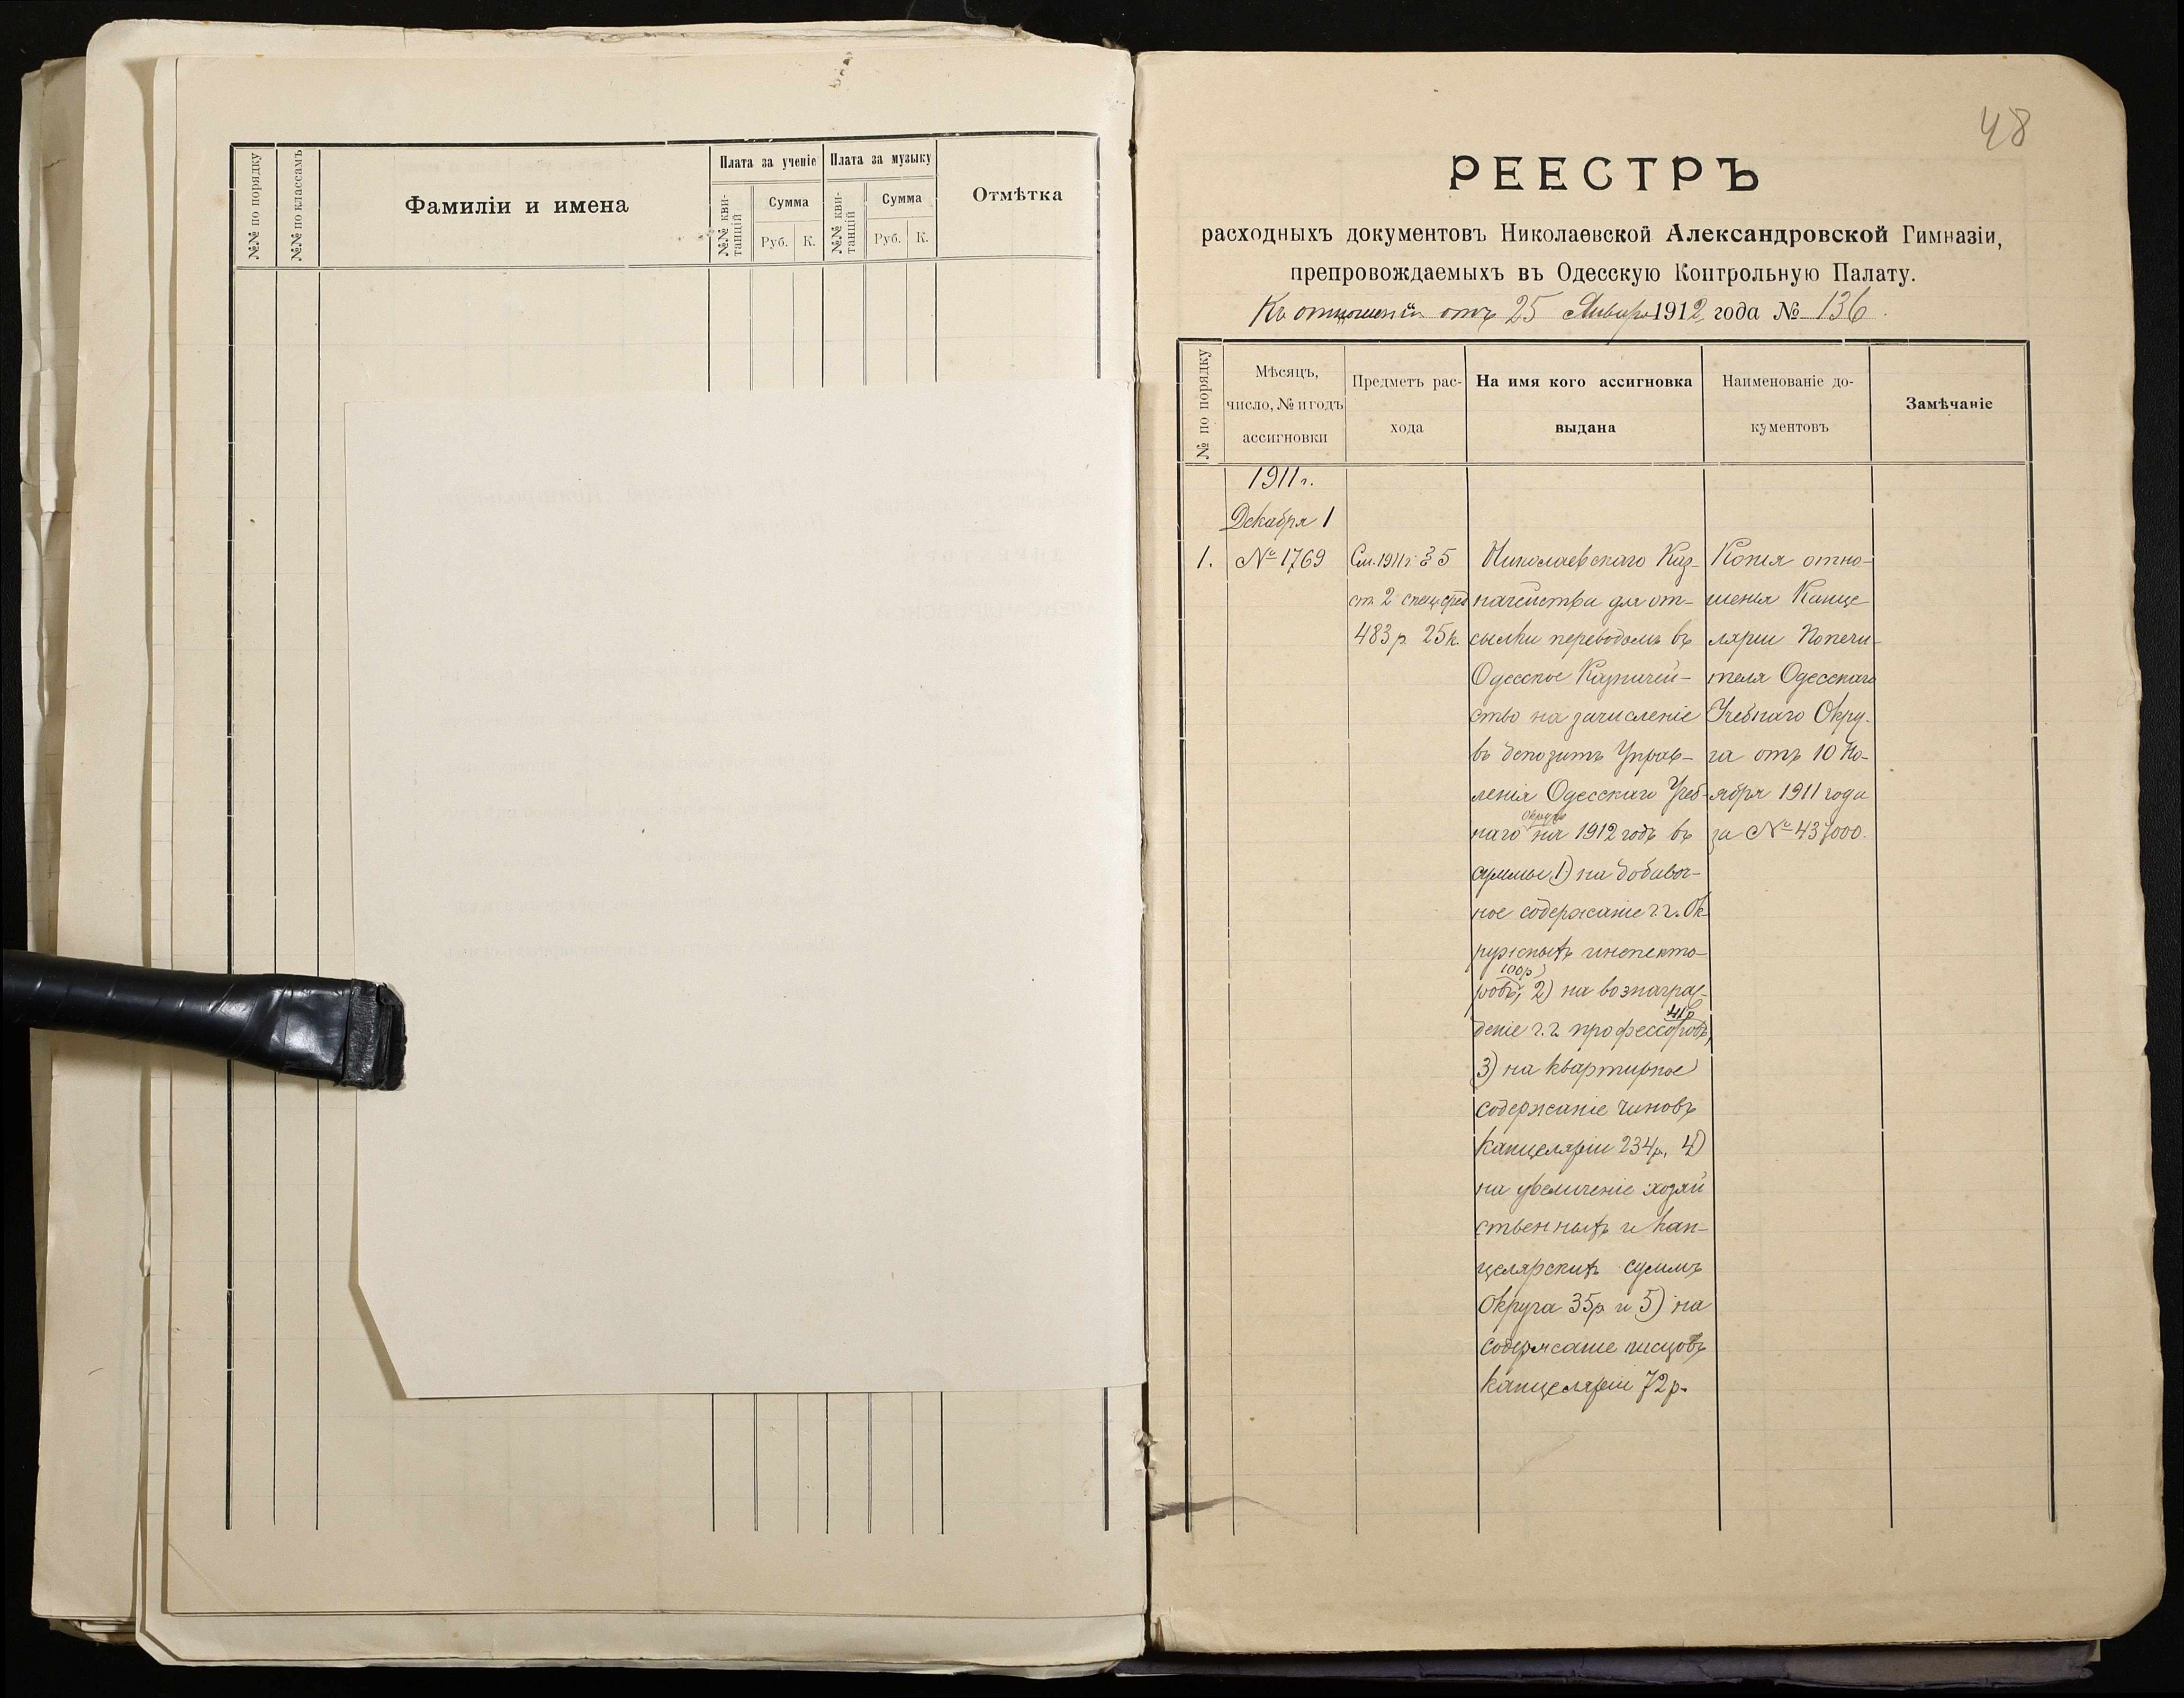 №№ по порядку
№№ по классамъ
Фамиліи и имена
Плата за ученіе
№№ кви-
танцій
Сумма
Руб.
К.
Плата за музыку
№№ кви-
танцій
Сумма
Руб.
К.
Отмѣтка
48
РЕЕСТРЪ
расходныхъ документовъ Николаевской Александровской Гимназіи,
препровождаемыхъ въ Одесскую Контрольную Палату.
Къ отношенію отъ 25 Января 1912 года № 136
№ по порядку
Мѣсяцъ,
число, № и годъ
ассигновки
Предметъ рас-
хода
На имя кого ассигновка
выдана
Наименованіе до-
кументовъ
Замѣчаніе
1911 г.
Декабря 1
1.
№ 1769
См. 1911 г. § 5
ст. 2 спец. сред
483 р. 25 к.
Николаевскаго Каз-
начейства для от-
сылки переводомъ въ
Одесское Казначей-
ство на зачисленіе
въ депозитъ Управ-
ленія Одесскаго Учеб-
округа
наго на 1912 годъ въ
суммы 1) на добавоч-
ное содержаніе г.г. Ок
ружныхъ инспекто-
100 р
ровъ, 2) на вознаграж-
41 р
деніе г.г. профессоровъ,
3) на квартирное
содержаніе чиновъ
Канцеляріи 234 р, 4)
на увеличеніе хозяй
ственныхъ и кан-
целярскихъ суммъ
Округа 35 р и 5) на
содержаніе писцовъ
канцеляріи 72 р.
Копія отно-
шенія Канце
ляріи Попечи-
теля Одесскаго
Учебнаго Окру-
га отъ 10 Но-
ября 1911 года
за № 43,000.